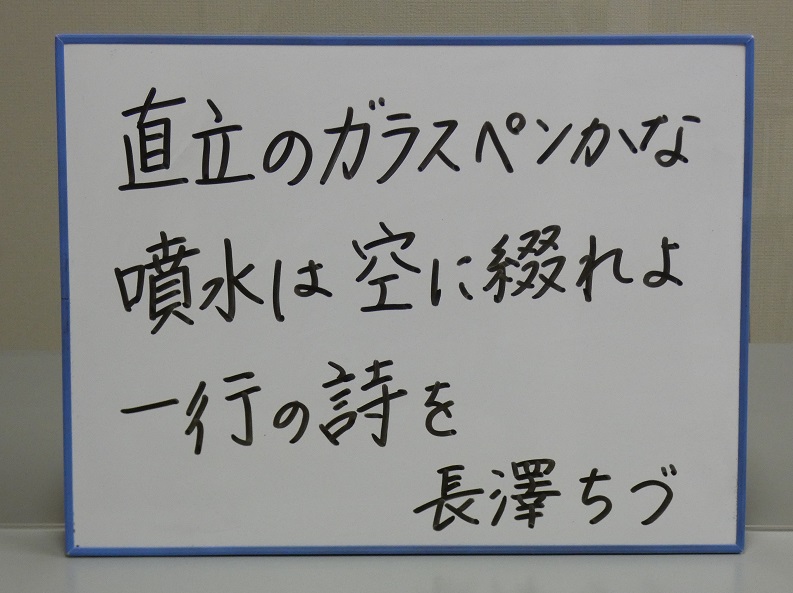 直立のガラスペンかな
噴水は空に綴れよ
一行の詩を
長澤ちづ